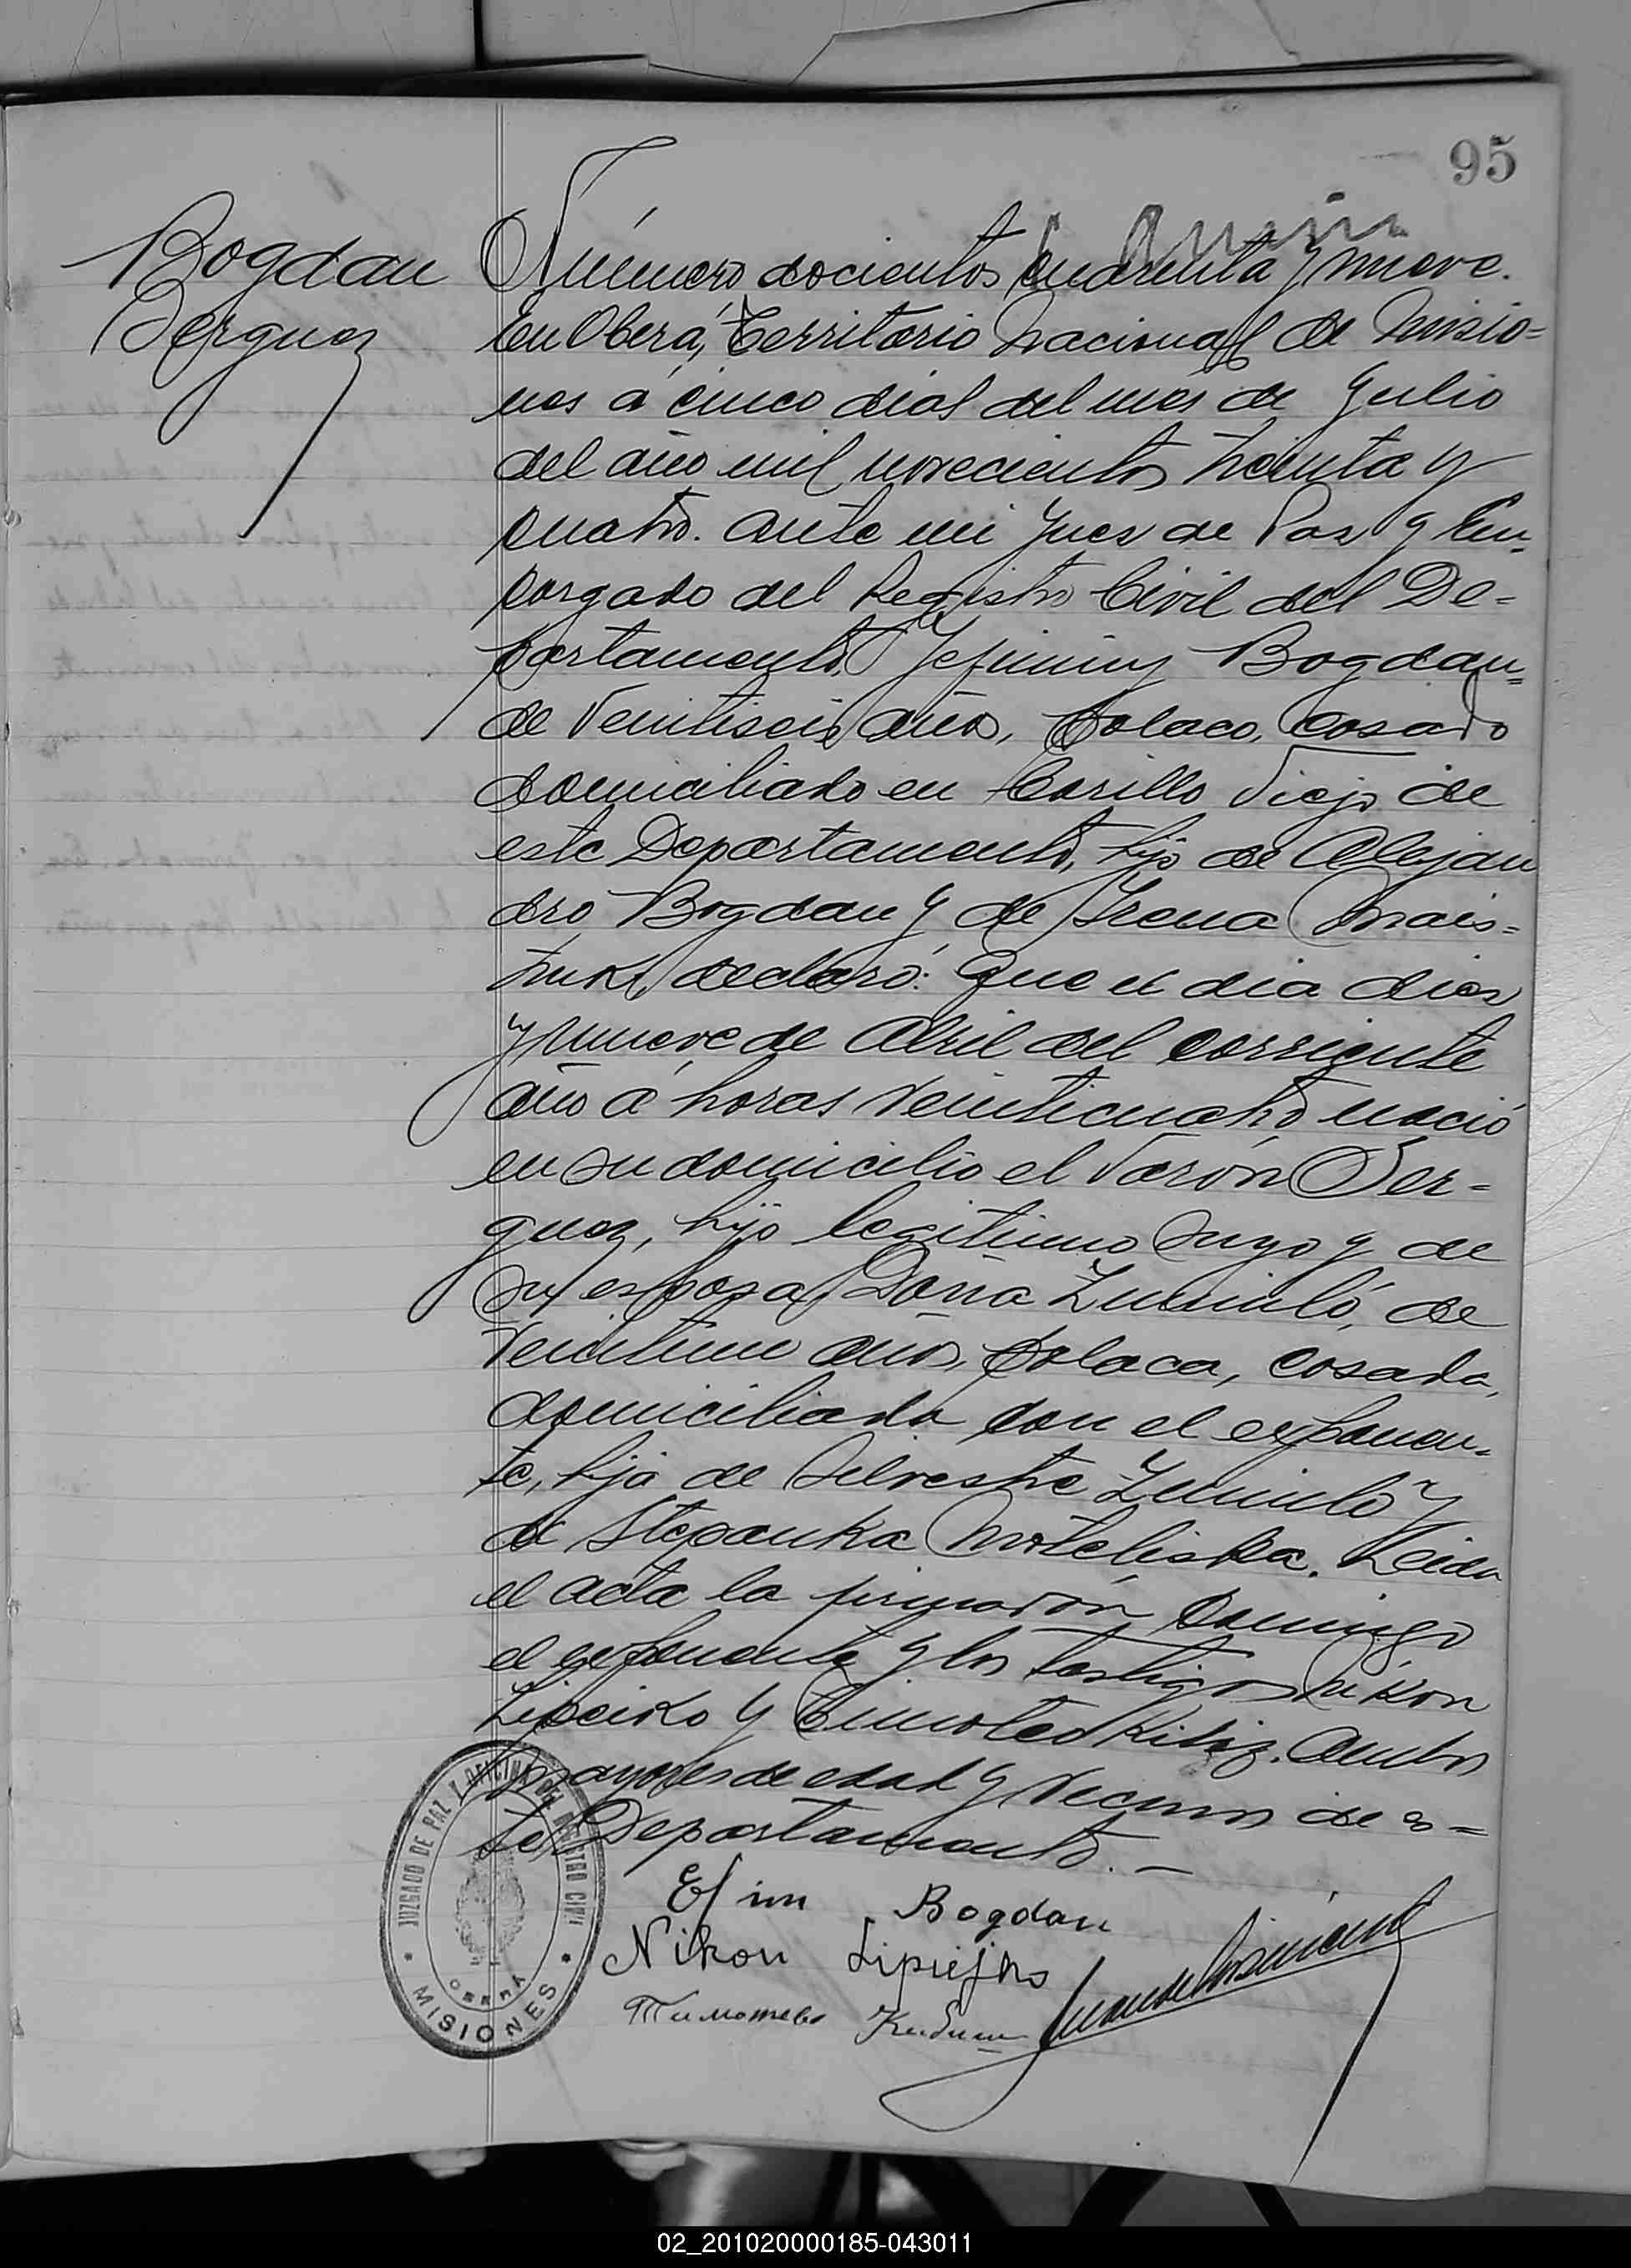 95
Bogdan
Serguez
Número docientos cuarenta y nueve.
En Oberá, Territorio Nacional de Misio=
nes a cinco dias del mes de Julio
del año mil novecientos treinta y
cuatro. Ante mi Juez de Paz y En-
cargado del Registro Civil del De=
partamento, Jefiminy Bogdan=
de Veintiseis años, polaco, casado
domiciliado en Cerillo Viejo de
este Departamento, hijo de Alejan
dro Bogdan y de Irena Mais=
truk, declaró: Que el dia diez
y nueve de Abril del corriente
año a horas veinticuatro nació
en su domicilio el Varón Ser=
guez, hijo legitimo Suyo y de
su esposa Doña de
Veintiun años, polaca, casada,
domiciliada con el exponen=
te, hija de Silvestre y
de Stepanka Leida
el acta la firmarón conmigo
el exponente y los testigos Nikon
Lipeiko y Timoteo Kibiz. Ambos
mayores de edad y vecinos de es=
te Departamento.—
Efim Bogdan
Nikon Lipiejko
Тимотево
JUZGADO DE PAZ Y OFICINA DEL REGISTRO CIVIL
OBERÁ
* MISIONES *
02_201020000185-043011